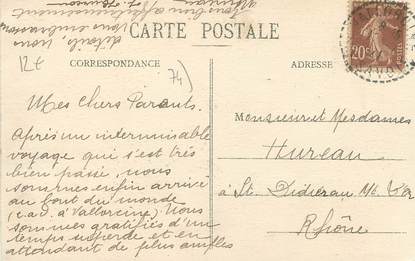 CARTE POSTALE
CORRESPONDANCE
ADRESSE
12€
74)
20c
Mes Chers Parents.
Après un interminable
voyage qui s'est très
bien passé, nous
sommes enfin arrivé
au bout du monde
(c.a.d. à Vallorcine). Nous
sommes gratifiés d'un
temps superbe et en
attendant de plus amples
détails, nous
vous embrassons
tous bien affectueusement
Monsieur et Mesdames
Hureau
à St. Didier au Mt d'Or
Rhône